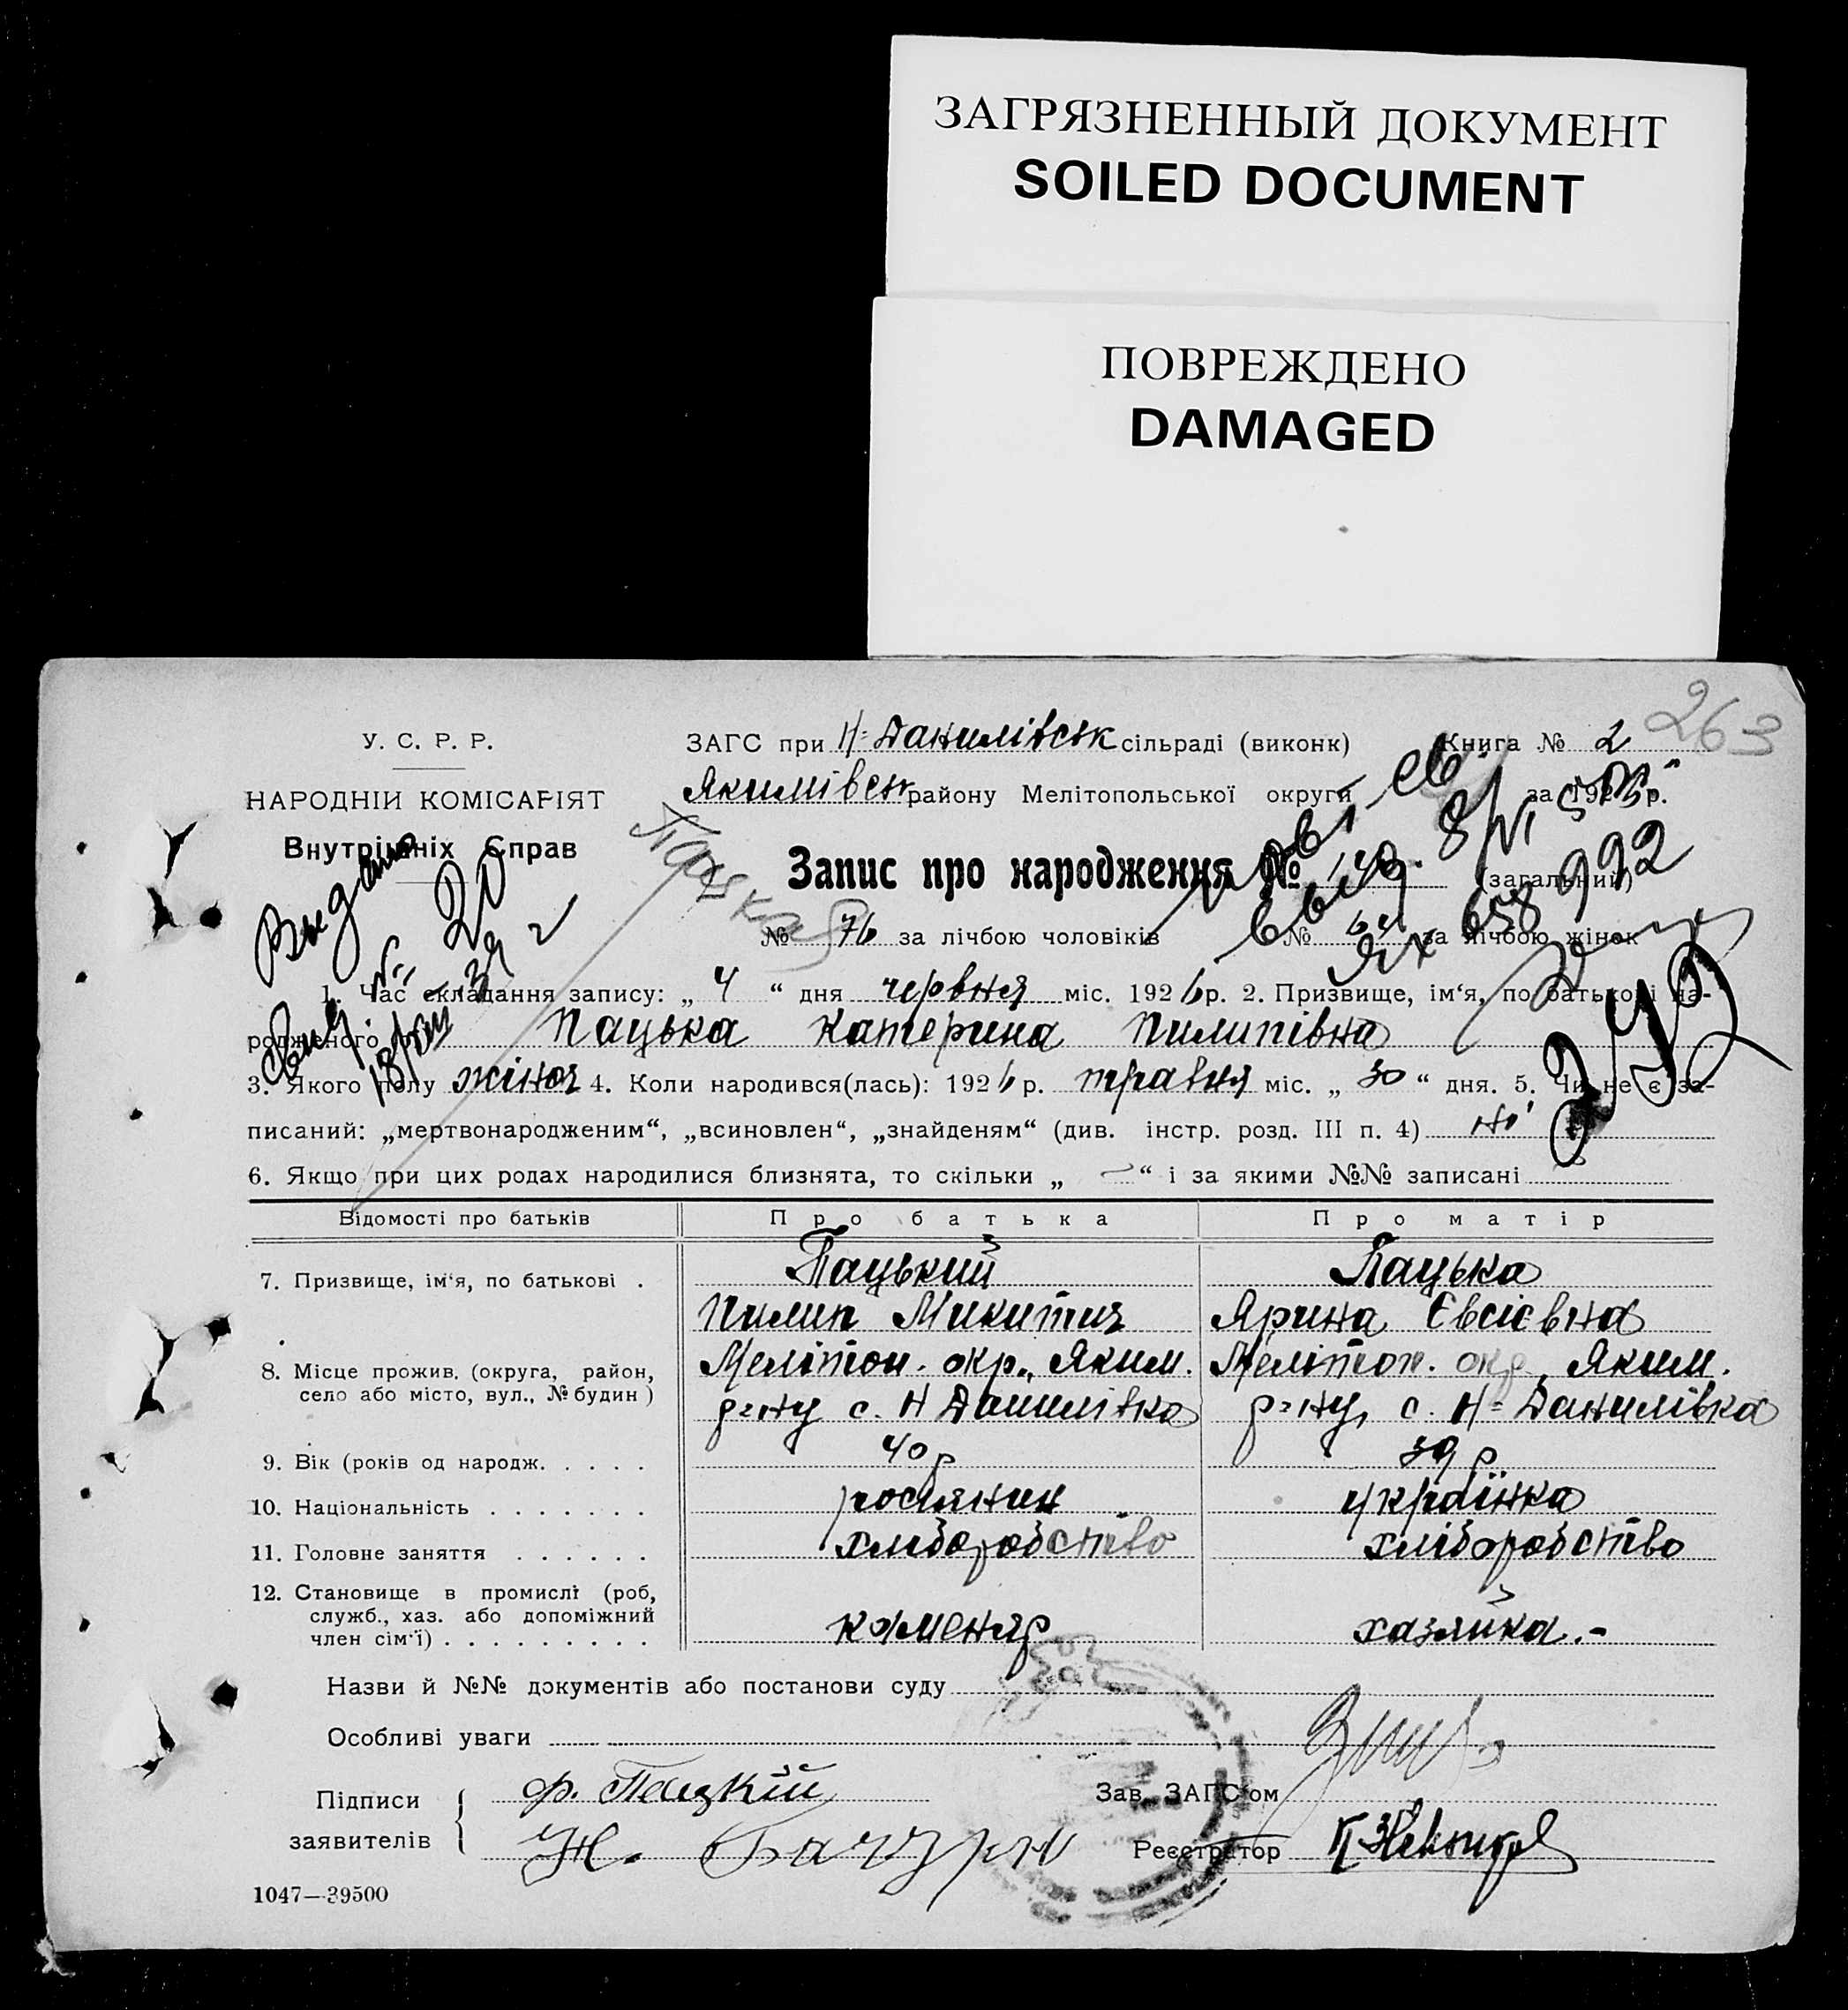 ЗАГРЯЗНЕННЫЙ ДОКУМЕНТ
SOILED DOCUMENT
ПОВРЕЖДЕНО
DAMAGED
263
У. С. Р. Р.
НАРОДНІЙ КОМІСАРІЯТ
Внутрішніх Справ
ЗАГС при Н-Данилівськ сільраді (виконк) Книга № 2
Якимівськ району Мелітопольської округи за 192 р.
Запис про народження № 140 (загальний)
№ 76 за лічбою чоловіків № 64 за лічбою жінок
Пацькая
Выдано
20
658992
1. Час складання запису: „ 4 “ дня червня міс. 1926 р. 2. Призвище, ім‘я, по батькові на-
родженого Пацька Катерина Пилипівна
3. Якого полу жіноч 4. Коли народився(лась): 1926 р. травня міс. „ 30 “ дня. 5. Чи не є за-
писаний: „мертвонародженим“, „всиновлен“, „знайденям“ (див. інстр. розд. III п. 4) ні
6. Якщо при цих родах народилися близнята, то скільки „ — “ і за якими №№ записані
Відомості про батьків Про батька Про матір
7. Призвище, ім‘я, по батькові . Пацький Пацька
Пилип Микитич Ярина Євсієвна
8. Місце прожив. (округа, район, Мелітоп. окр., Яким. Мелітоп. окр, Яким.
село або місто, вул., № будин ) р-ну с. Н Данилівка р-ну, с. Н-Данилівка
9. Вік (років од народж. . . . . 40 р 39 р
10. Національність . . . . . . . росіянин українка
11. Головне заняття . . . . . . хліборобство хліборобство
12. Становище в промислі (роб,
служб., хаз. або допоміжний
член сім‘ї) . . . . . . . . . каменяр хазяйка.-
Назви й №№ документів або постанови суду
Особливі уваги
Підписи
заявителів
ф. Пацкій
Зав. ЗАГС‘ом
Реєстратор
1047—39500